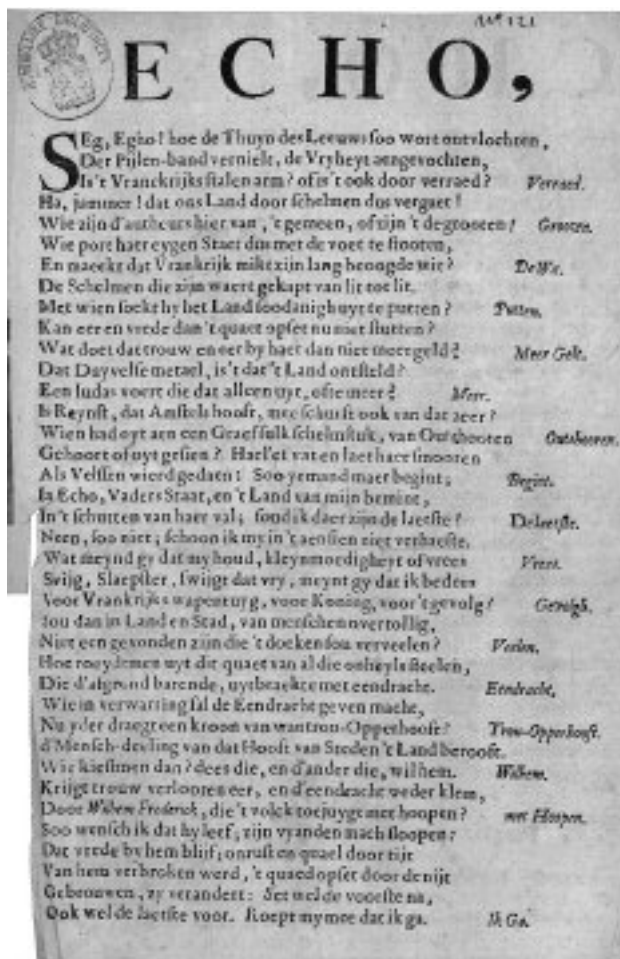 Nº 121
ECHO,
SEg, Egho! hoe de Thuyn des Leeuws soo wort ontvlochten,
Der Pijlen-band vernielt, de Vryheyt aengevochten,
Is't Vranckrijks stalen arm? of is't ook door verraed? Verraed.
Ha, jammer! dat ons Land door schelmen dus vergaet!
Wie zijn d'autheurs hier van, 't gemeen, of zijn 't de grooten? Grooten.
Wie port haer eygen Staet dus met de voet te stooten,
En maeckt dat Vrankrijk mikt zijn lang beoogde wit? De Wit.
De Schelmen die zijn waert gekapt van lit tot lit.
Met wien soekt hy het Land soodanigh uyt te putten? Putten,
Kan eer en vrede dan 't quaet opset nu niet stutten?
Wat doet dat trouw en eer by haer dan niet meer geld? Meer Gelt.
Dat Duyvelse metael, is't dat 't Land ontsteld?
Een Iudas voert die dat alleen uyt, ofte meer? Meer.
Is Reynst, dat Amstels hooft, mee schurft ook van dat zeer?
Wien had oyt aen een Graef sulk schelmstuk, van Outshooren Outshooren.
Gehoort of oyt gesien? Hael'et vat en laet haer smooren
Als Velssen wierd gedaen! Soo yemand maer begint; Begint.
Ia Echo, Vaders Staat, en 't Land van mijn bemint,
In't schutten van haer val; soud ik daer zijn de laetste? De leetste.
Neen, soo niet; schoon ik my in 't aensien niet verhaeste.
Wat meynd gy dat my houd, kleynmoedigheyt of vrees Vrees.
Swijg, Slaepster, swijgt dat vry, meynt gy dat ik bedees
Voor Vrankrijks wapentuyg, voor Koning, voor 't gevolg? Gevolgh.
Sou dan in Land en Stad, van menschen overtollig,
Niet een gevonden zijn die 't doeken sou verveelen? Veelen.
Hoe roeydemen uyt dit quaet van al die onheyls steelen,
Die d'afgrond barende, uytbraekte met eendracht. Eendracht,
Wie in verwarring sal de Eendracht geven macht,
Nu yder draegt een kroon van wantrou-Opperhooft? Trou-Opperhooft.
d'Mensch-deeling van dat Hooft van Steden 't Land berooft.
Wie kiestmen dan? dees die, en d'ander die, wil hem. Wilhem.
Krijgt trouw verlooren eer, en d'eendracht weder klem,
Door Wilhem Frederick, die 't volck toejuygt met hoopen? met Hoopen.
Soo wensch ik dat hy leef; zijn vyanden mach sloopen:
Dat vrede by hem blijf; onrust en quael door tijt
Van hem verbroken werd, 't quaed opset door de nijt
Gebrouwen, zy verandert: Set wel de voorste na,
Ook wel de laetste voor. Roept my mee dat ik ga. Ik Ga.